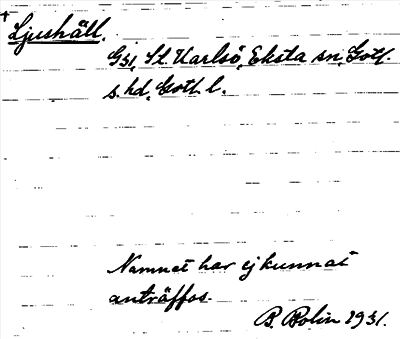 †
Ljushäll.
G51, St. Karlsö, Eksta sn, Gotl.
s. hd, Gotl. l.
Namnet har ej kunnat
anträffas.
B. Bolin 1931.